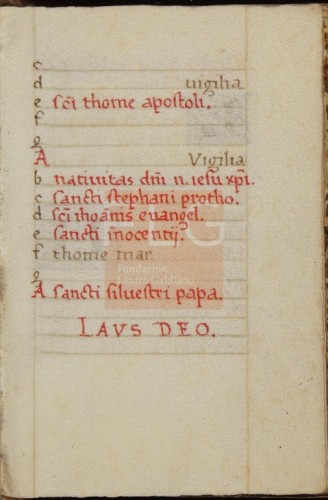 c
d uigilia
e sc̄i thome apostoli.
f
g
A Vigilia
b natiuitas dn̄i n. iesu xp̄i.
c sancti stephani protho.
d sc̄i ihoānis euangel.
e sancti inocentij.
f thome mar.
g
A sancti siluestri papa.
LAVS DEO.
FLG
Fundación
Lázaro Galdiano